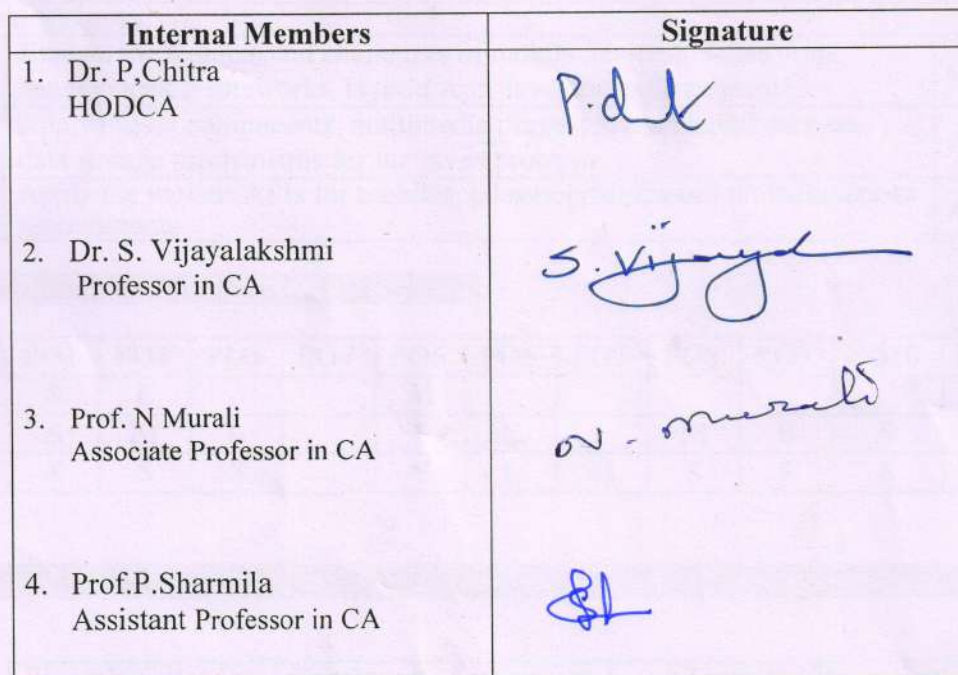 Internal Members Signature
1. Dr. P,Chitra
HODCA
2. Dr. S. Vijayalakshmi
Professor in CA
S. Vijayal
3. Prof. N Murali
Associate Professor in CA
N - Murali
4. Prof.P.Sharmila
Assistant Professor in CA